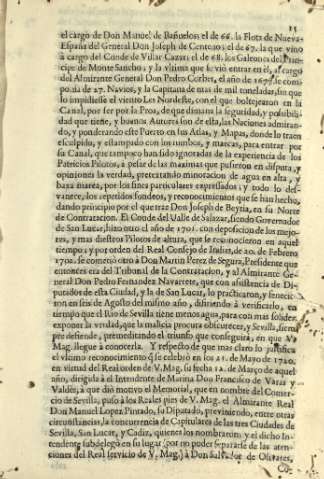 15
el cargo de Don Manuel de Bañuelos: el de 66. la Flota de Nueva-
España del General Don Joseph de Centeno: el de 67. la que vino
à cargo del Conde de Villar Castre: el de 68. los Galeones del Prin-
cipe de Monte Sancho; y la vltima que se viò entrar en èl, al cargo
del Almirante General Don Pedro Corbet, el año de 1679. se com-
ponia de 27. Navios, y la Capitana de mas de mil toneladas, sin que
lo impidiesse el viento Les Nordeste, con el que boltejearon en la
Canal, por ser por la Proa, de que dimana la seguridad, y possibili-
dad que tiene, y buena Autores son de esta, las Naciones admiran-
do, y ponderando este Puerto en sus Atlas, y Mapas, donde lo traen
esculpido, y estampado con los rumbos, y marcas, para entrar por
su Canal, que tampoco han sido ignoradas de la experiencia de los
Patricios Pilotos, à pesar de las maximas que pusieron en disputa, y
opiniones la verdad, pretextando minoracion de agua en alta, y
baxa marea, por los fines particulares expressados; y todo lo des-
vanece, los repetidos sondeos, y reconocimientos que se han hecho,
dando principio por el que trae Don Joseph de Beytia, en su Norte
de Contratacion. El Conde del Valle de Salazar, siendo Governador
de San Lucar, hizo otro el año de 1701. con deposicion de los mejo-
res, y mas diestros Pilotos de altura, que se reconocieron en aquel
tiempo; y por orden del Real Consejo de Indias, de 20. de Febrero
1702. se cometiò otro à Don Martin Perez de Segura, Presidente que
entonces era del Tribunal de la Contratacion, y al Almirante Ge-
neral Don Pedro Fernandez Navarrete, que con assistencia de Di-
putados de esta Ciudad, y la de San Lucar, lo practicaron, y fenecie-
ron en seis de Agosto del mismo año, difiriendo à verificarlo, en
tiempo que el Rio de Sevilla tiene menos agua, para con mas solidez
exponer la verdad, que la malicia procura obscurecer, y Sevilla, siem-
pre defiende, premeditando el triunfo que conseguirà, en que V.
Mag. llegue à conocerla. Y respecto de que mas claro lo justifica
el vltimo reconocimiento q̃ se celebrò en los 21. de Mayo de 1720.
en virtud del Real orden de V. Mag. su fecha 12. de Março de aquel
año, dirigida à el Intendente de Marina Don Francisco de Varas y
Valdès, à que diò motivo el Memorial, que en nombre del Comer-
cio de Sevilla, puso à los Reales pies de V. Mag. el Almirante Real
Don Manuel Lopez Pintado, su Diputado, previniendo, entre otras
circunstancias, la concurrencia de Capitulares de las tres Ciudades de
Sevilla, San Lucar, y Cadiz, quienes los nombraron, y el dicho In-
tendente subdelegò en su lugar (por no poder separarse de las aten-
ciones del Real servicio de V. Mag.) à Don Salvador de Olivares,
Co-